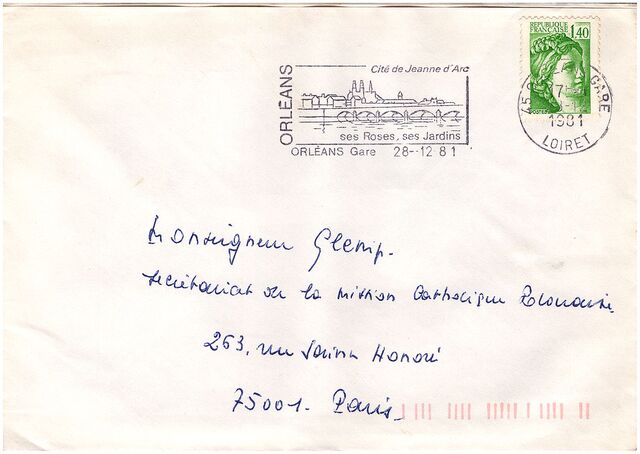 RÉPUBLIQUE
FRANÇAISE 1,40
POSTES
ORLÉANS
Cité de Jeanne d'Arc
ses Roses, ses Jardins
ORLÉANS Gare 28--12 81
GARE
1981
LOIRET
Monseigneur Glemp.
Secrétariat de la Mission Catholique Polonaise
263, rue Saint Honoré
75001. Paris